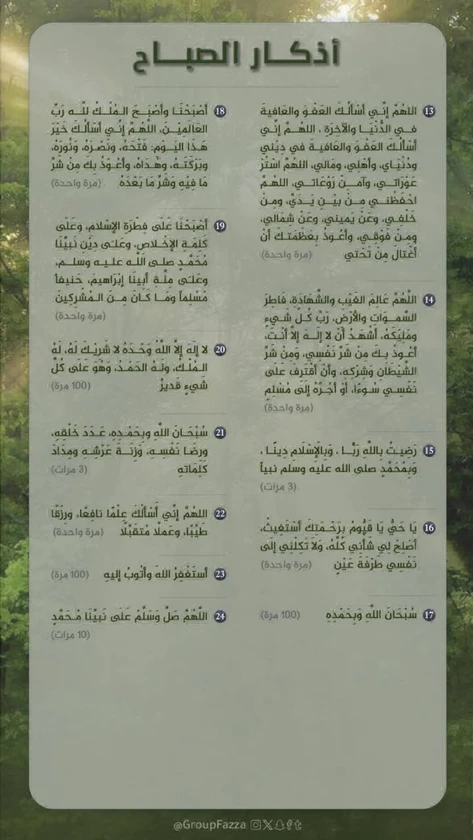 أذكار الصباح
13 اللهُمَّ إِنِّي أَسْأَلُكَ العَفْوَ وَالعَافِيةَ
فِي الدُّنْيَا وَالآخِرَةِ ، اللهُمَّ إِنِّي
أَسْأَلُكَ العَفْوَ وَالعَافِيَةَ فِي دِيْنِي
وَدُنْيَايَ، وَأَهْلِي، وَمَالِي، اللهُمَّ اسْتُرْ
عَوْرَاتِي، وَآمِنْ رَوْعَاتِي، اللهُمَّ
احْفَظْنِي مِنْ بَيْنِ يَدَيَّ، وَمِنْ
خَلْفِي، وَعَنْ يَمِينِي، وَعَنْ شِمَالِي،
وَمِنْ فَوْقِي، وَأَعُوذُ بِعَظَمَتِكَ أَنْ
أُغْتَالَ مِنْ تَحْتِي (مرة واحدة)
14 اللَّهُمَّ عَالِمَ الغَيْبِ وَالشَّهَادَةِ، فَاطِرَ
السَّمَوَاتِ وَالأَرْضِ، رَبَّ كُلِّ شَيْءٍ
وَمَلِيكَهُ، أَشْهَدُ أَنْ لا إِلَهَ إِلاَّ أَنْتَ،
أَعُوذُ بِكَ مِنْ شَرِّ نَفْسِي، وَمِنْ شَرِّ
الشَّيْطَانِ وَشِرْكِهِ، وَأَنْ أَقْتَرِفَ عَلَى
نَفْسِي سُوءًا، أَوْ أَجُرَّهُ إِلَى مُسْلِمٍ
(مرة واحدة)
15 رَضِيتُ بِاللَّهِ رَبًّا ، وَبِالإِسْلَامِ دِينًا ،
وَبِمُحَمَّدٍ صلى الله عليه وسلم نبياً
(3 مرات)
16 يَا حَيُّ يَا قَيُّومُ بِرَحْمَتِكَ أَسْتَغِيثُ،
أَصْلِحْ لِي شَأْنِي كُلَّهُ، وَلَا تَكِلْنِي إِلَى
نَفْسِي طَرْفَةَ عَيْنٍ (مرة واحدة)
17 سُبْحَانَ اللَّهِ وَبِحَمْدِهِ (100 مرة)
18 أَصْبَحْنَا وَأَصْبَحَ المُلْكُ لِلَّهِ رَبِّ
العَالَمِيْنَ، اللهُمَّ إِنِّي أَسْأَلُكَ خَيْرَ
هَذَا اليَوْمِ: فَتْحَهُ، وَنَصْرَهُ، وَنُورَهُ،
وَبَرَكَتَهُ، وَهُدَاهُ، وَأَعُوْذُ بِكَ مِنْ شَرِّ
مَا فِيْهِ وَشَرِّ مَا بَعْدَهُ. (مرة واحدة)
19 أَصْبَحْنَا عَلَى فِطْرَةِ الإِسْلَامِ، وَعَلَى
كَلِمَةِ الإِخْلَاصِ، وَعَلَى دِيْنِ نَبِيِّنَا
مُحَمَّدٍ صلى الله عليه وسلم،
وَعَلَى مِلَّةِ أَبِينَا إِبْرَاهِيمَ، حَنِيفاً
مُسْلِماً وَمَا كَانَ مِنَ المُشْرِكِينَ
(مرة واحدة)
20 لا إِلَهَ إِلاَّ اللَّهُ وَحْدَهُ لا شَرِيْكَ لَهُ، لَهُ
المُلْكُ، وَلَهُ الحَمْدُ، وَهُوَ عَلَى كُلِّ
شَيْءٍ قَدِيرٌ (100 مرة)
21 سُبْحَانَ اللهِ وبِحَمْدِهِ، عَدَدَ خَلْقِهِ،
ورِضَا نَفْسِهِ، وَزِنَةَ عَرْشِهِ ومِدَادَ
كَلِمَاتِهِ (3 مرات)
22 اللهُمَّ إِنِّي أَسْأَلُكَ عِلْمًا نافِعًا، ورِزْقًا
طَيِّبًا، وَعَمَلًا مُتَقَبَّلًا (مرة واحدة)
23 أَسْتَغْفِرُ اللهَ وَأَتُوبُ إِلَيهِ (100 مرة)
24 اللَّهُمَّ صَلِّ وَسَلِّمْ عَلَى نَبِيِّنَا مُحَمَّدٍ
(10 مرات)
@GroupFazza